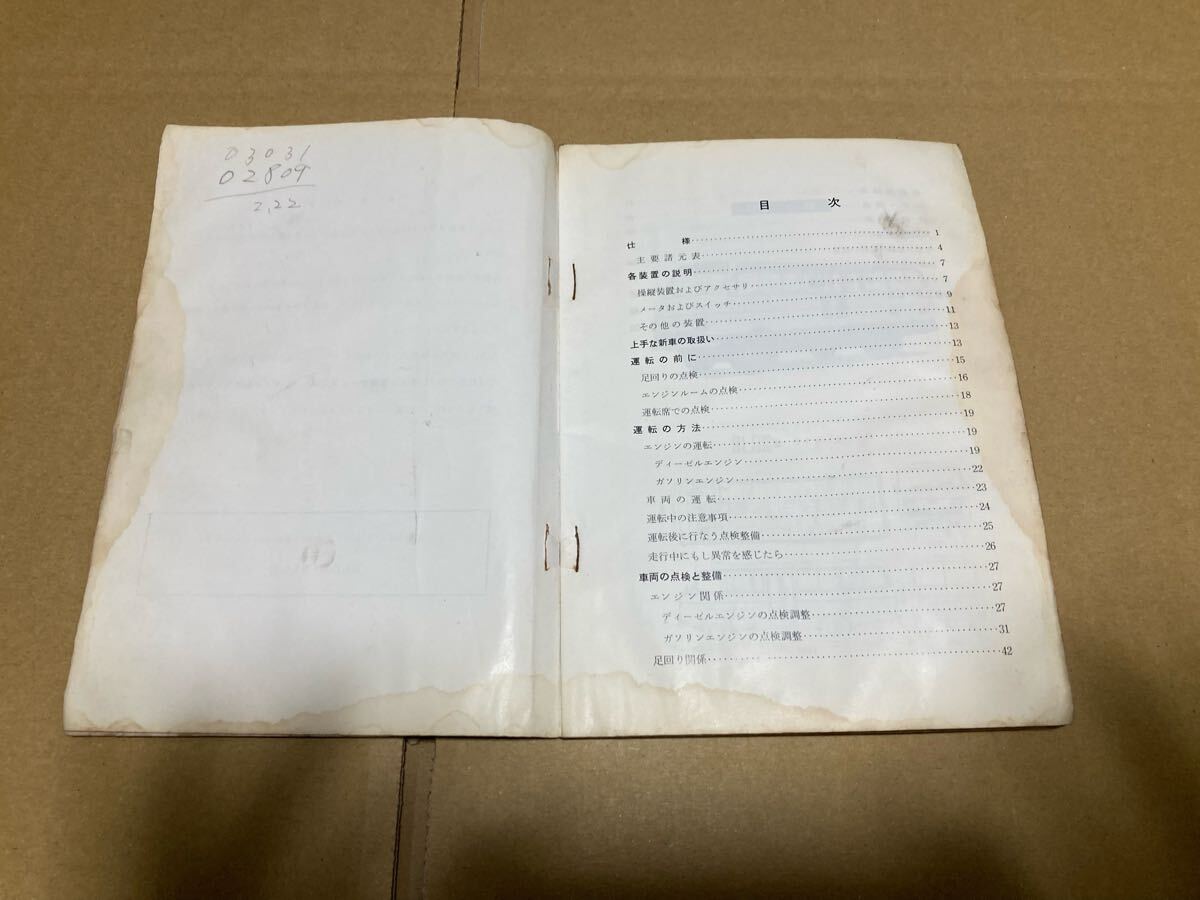 03031
02809
2,22
目 次
仕 様 1
主要諸元表 4
各装置の説明 7
操縦装置およびアクセサリ 7
メータおよびスイッチ 9
その他の装置 11
上手な新車の取扱い 13
運転の前に 13
足回りの点検 15
エンジンルームの点検 16
運転席での点検 18
運転の方法 19
エンジンの運転 19
ディーゼルエンジン 19
ガソリンエンジン 22
車両の運転 23
運転中の注意事項 24
運転後に行なう点検整備 25
走行中にもし異常を感じたら 26
車両の点検と整備 27
エンジン関係 27
ディーゼルエンジンの点検調整 27
ガソリンエンジンの点検調整 31
足回り関係 42